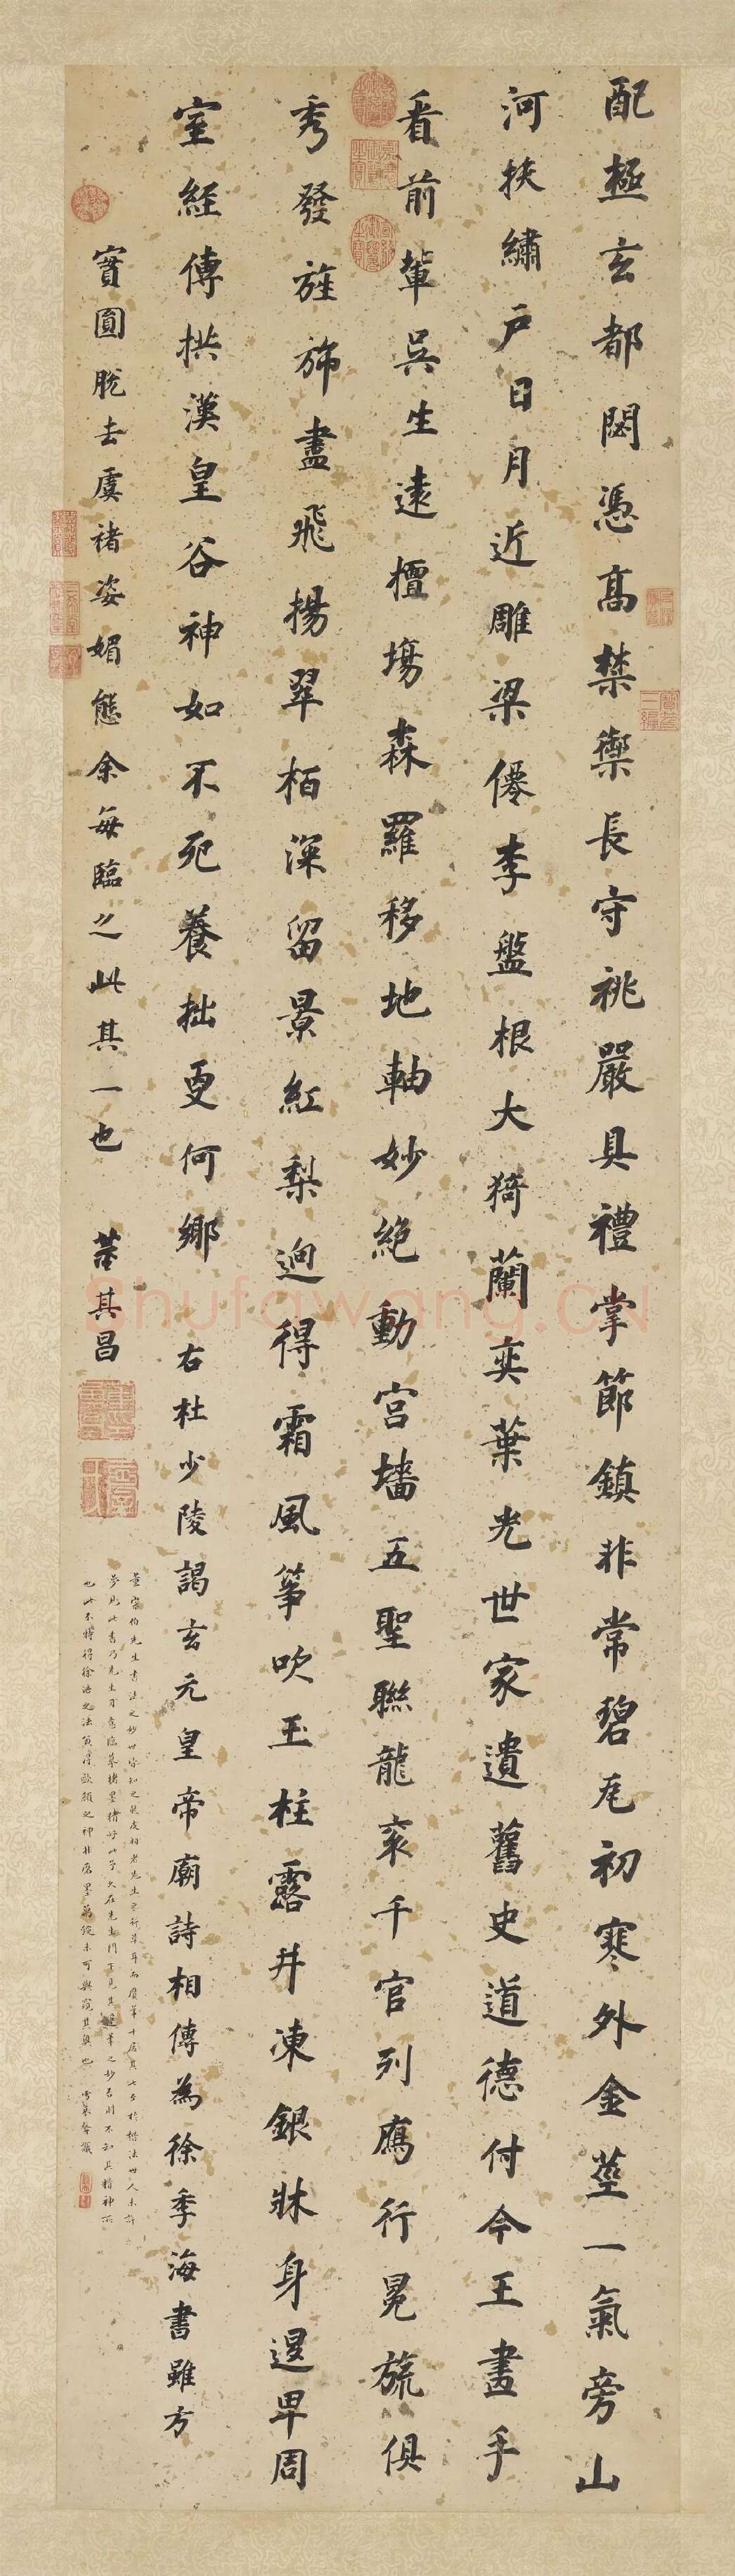 配極玄都閟憑高禁禦長守祧嚴具禮掌節鎮非常碧瓦初寒外金莖一氣旁山
河扶繡戶日月近雕梁僊李盤根大猗蘭奕葉光世家遺舊史道德付今王畫手
看前輩吳生遠擅場森羅移地軸妙絕動宮墻五聖聯龍袞千官列鴈行冕旒俱
秀發旌斾盡飛揚翠栢深留景紅梨迥得霜風箏吹玉柱露井凍銀牀身退卑周
室經傳拱漢皇谷神如不死養拙更何鄉 右杜少陵謁玄元皇帝廟詩相傳為徐季海書雖方
實圓脫去虞褚姿媚態余每臨之此其一也 董其昌
董宗伯先生書法之妙世皆知之
夢見此書乃先生
也此本特得徐浩之法兼得歐顏之神非
Shufawang.CN